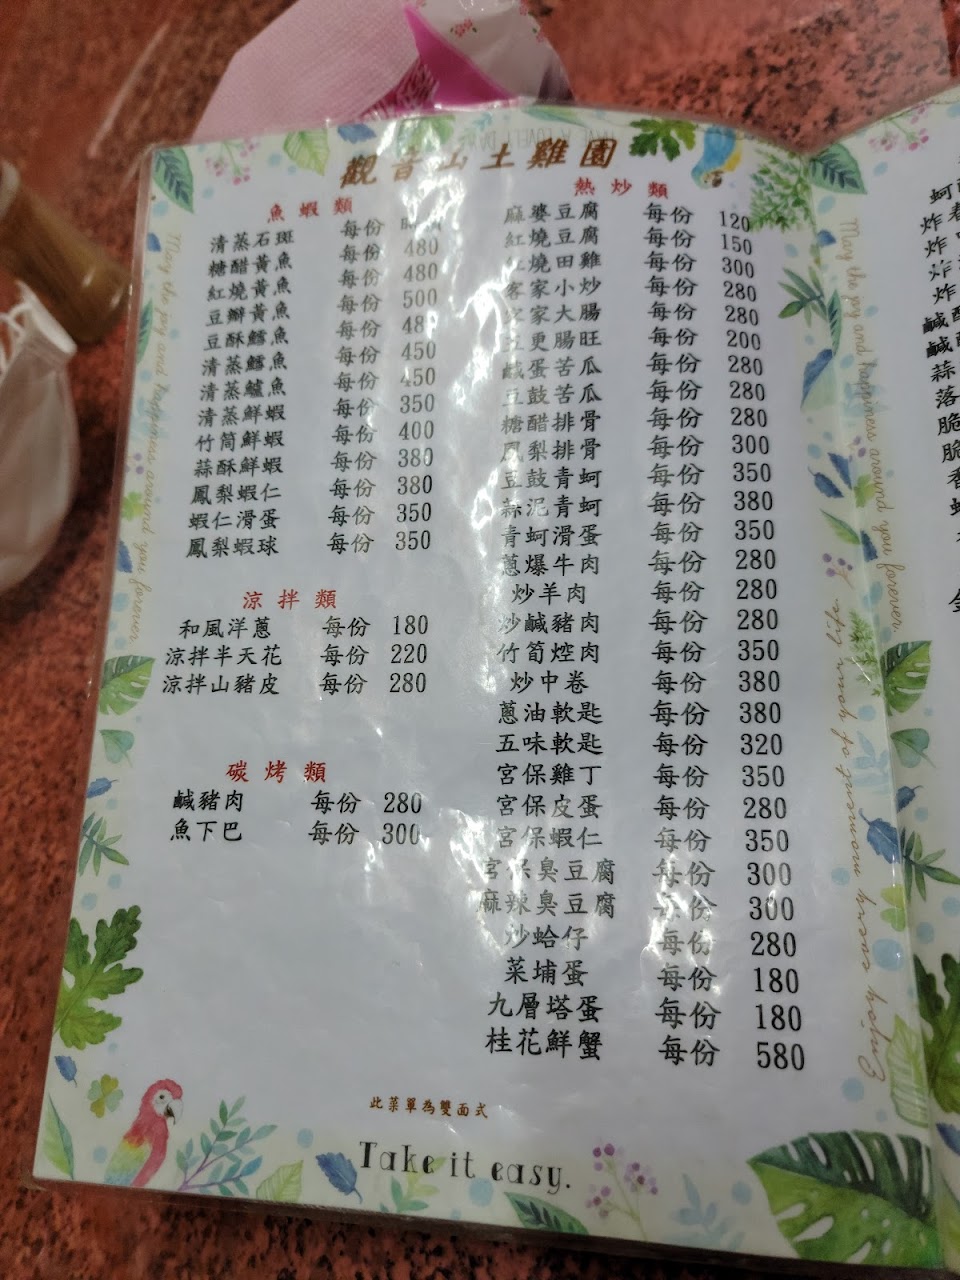 觀音山土雞園
魚蝦類
清蒸石斑 每份
糖醋黃魚 每份 480
紅燒黃魚 每份 480
豆瓣黃魚 每份 500
豆酥鱈魚 每份 480
清蒸鱈魚 每份 450
清蒸鱸魚 每份 450
清蒸鮮蝦 每份 350
竹筒鮮蝦 每份 400
蒜酥鮮蝦 每份 380
鳳梨蝦仁 每份 380
蝦仁滑蛋 每份 350
鳳梨蝦球 每份 350
涼拌類
和風洋蔥 每份 180
涼拌半天花 每份 220
涼拌山豬皮 每份 280
碳烤類
鹹豬肉 每份 280
魚下巴 每份 300
熱炒類
麻婆豆腐 每份 120
紅燒豆腐 每份 150
紅燒田雞 每份 300
客家小炒 每份 280
客家大腸 每份 280
五更腸旺 每份 200
鹹蛋苦瓜 每份 280
豆鼓苦瓜 每份 280
糖醋排骨 每份 280
鳳梨排骨 每份 300
豆鼓青蚵 每份 350
蒜泥青蚵 每份 380
青蚵滑蛋 每份 350
蔥爆牛肉 每份 280
炒羊肉 每份 280
炒鹹豬肉 每份 280
竹筍焢肉 每份 350
炒中卷 每份 380
蔥油軟匙 每份 380
五味軟匙 每份 320
宮保雞丁 每份 350
宮保皮蛋 每份 280
宮保蝦仁 每份 350
宮保臭豆腐 每份 300
麻辣臭豆腐 每份 300
炒蛤仔 每份 280
菜埔蛋 每份 180
九層塔蛋 每份 180
桂花鮮蟹 每份 580
此菜單為雙面式
Take it easy.
May the joy and happiness around you forever
May the joy and happiness around you forever
Enjoy every moment of your life.
蚵
炸
炸
炸
炸
鹹
鹹
蒜
落
脆
脆
香